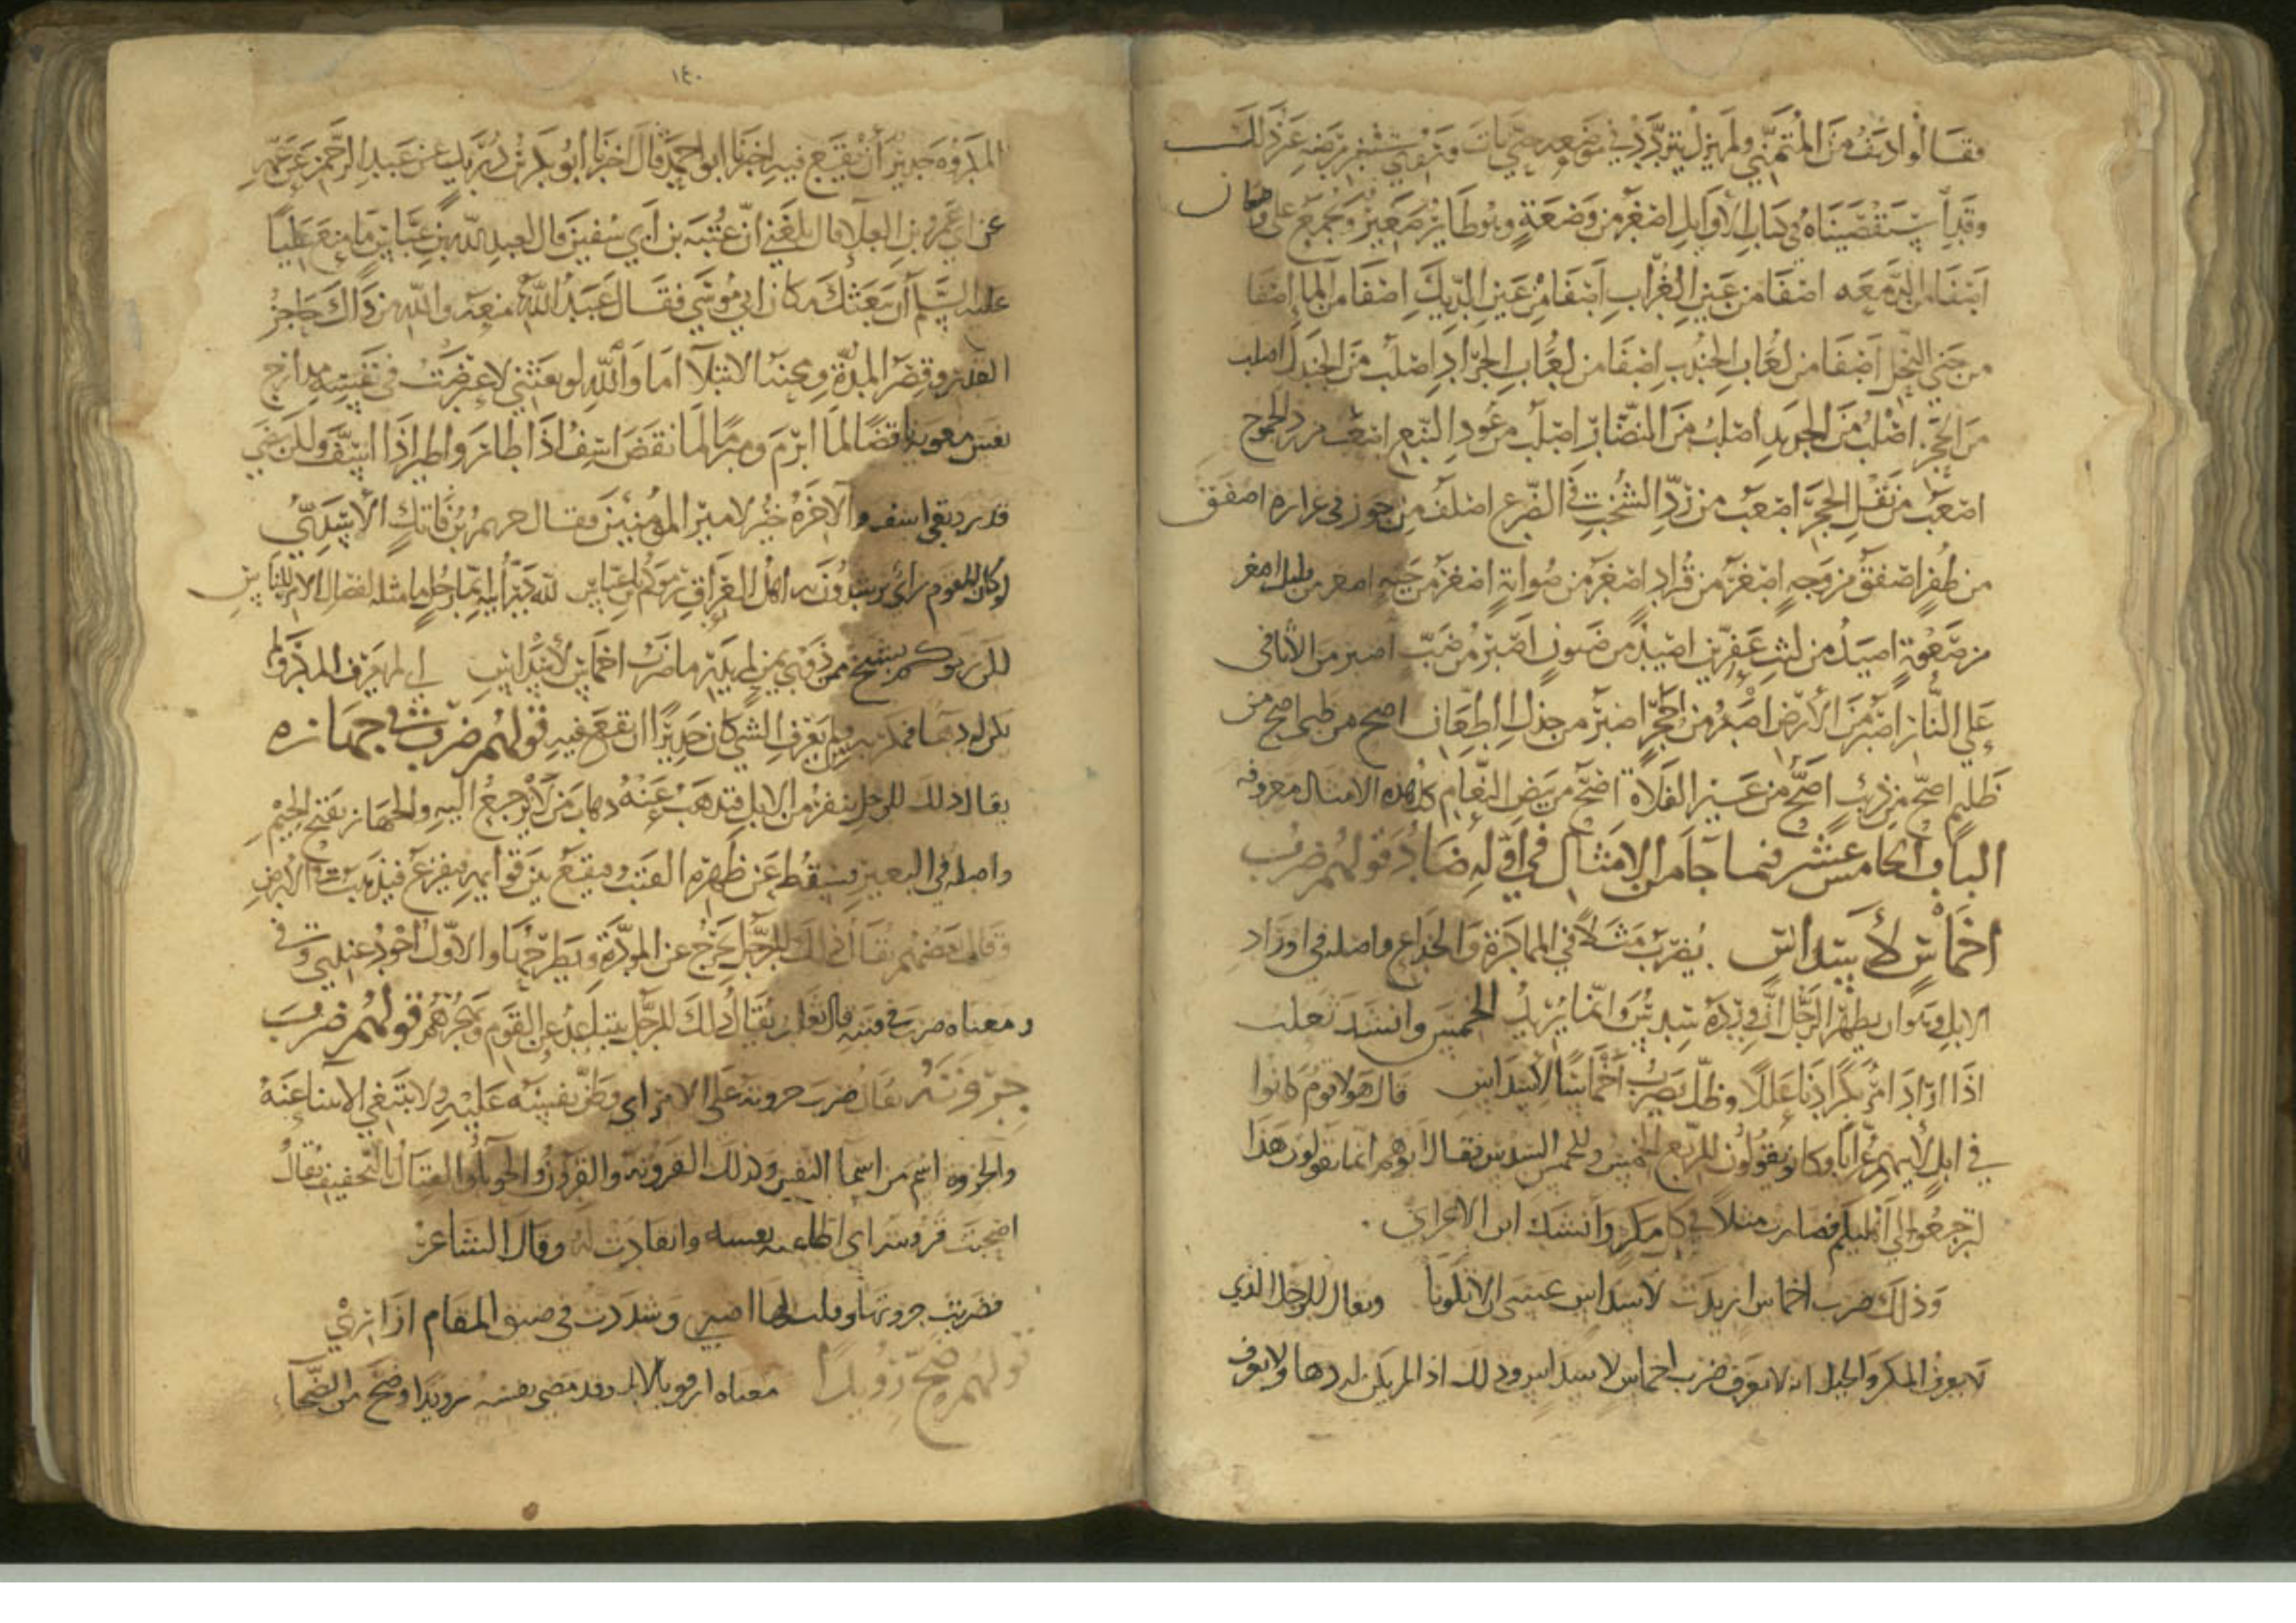 فقالوا ادنف من المتمني ولم يزل يتردد في موضعه حتى مات ونفي نصر عن ذلك
وقد استقصيناه في كتاب الاوايل اصغر من وصعة وهو طاير صغير ويجمع على وصعان
اصفا من الدمعه اصفا من عين الغراب اصفا من عين الديك اصفا من الماء اصفا
من جني النحل اصفا من لعاب الجندب اصفا من لعاب الجراد اصلب من الجندل اصلب
من الحجر اصلب من الحديد اصلب من النضار اصلب من عود النبع اصعب من رد الجموح
اصعب من نقل الحجر اصعب من رد الشخب في الضرع اصلف من جوز في غراره اصفق
من ظفر اصفق من وجه اصغر من قراد اصغر من صوابة اصغر من حبه اصغر من بلبل اصغر
من صعوة اصيد من ليث عفرين اصيد من ضيون اصبر من ضب اصبر من الاثافي
على النار اصبر من الارض اصبر من الحجر اصبر من جذل الطعان اصح من ظبي اصح من
ظليم اصح من ذيب اصح من عير الفلاة اصح من بيض النعام كل هذه الامثال معروفه
الباب الخامس عشر فيما جا من الامثال في اوله ضاد قولهم ضرب
اخماس لأسداس يضرب مثلا في المماكرة والخداع واصله في اوراد
الابل وهو ان يظهر الرجل ان ورده سدس وانما يريد الخمس وانشد ثعلب
اذا اراد امرؤ مكرا جنا عللا وظل يضرب اخماسا لأسداس قال هولا قوم كانوا
في ابل لابيهم غرابا وكانوا يقولون للربع الخمس وللخمس السدس فقال ابوهم انما تقولون هذا
لترجعوا الى اهليكم فصارت مثلا في كل مكر وانشد ابن الاعرابي
وذلك ضرب اخماس اريدت لاسداس عسى ان لا تكونا ويقال للرجل الذي
لا يعرف المكر والحيل انه لا يعرف ضرب اخماس لاسداس وذلك اذا لم يكن له دها ولا يعرف
١٤٠
المكروه جدير أن يقع فيه اخبرنا ابو احمد قال اخبرنا ابو بكر بن دريد عن عبد الرحمن عن عمه
عن ابي عمرو بن العلا قال بلغني ان عتبة بن ابي سفين قال لعبد الله بن عباس ما منع عليا
عليه السلم أن يبعثك مكان ابي موسى فقال عبد الله منعه والله من ذاك حاجز
القدر وقصر المدة ومحنة الابتلا اما والله لو بعثني لاعترضت في نفسه مدارج
نفس معوية ناقضا لما ابرم ومبرما لما نقض اسف اذا طار واطير اذا اسف ولكن مضى
قدر وبقي اسف والآخرة خير لامير المؤمنين فقال خريم بن فاتك الأسدي
لو كان للقوم راي يرشدون به اهل العراق رموكم بابن عباس لله در ابيه ايما رجل ما مثله لفصال الامر في الناس
لكن رموكم بشيخ من ذوي يمن لم يدر ما ضرب اخماس لأسداس اي لم يعرف المكر ولم
يكن له دها فمكر به ومن لم يعرف الشي كان جديرا ان يقع فيه قولهم ضرب في جهازه
يقال ذلك للرجل ينفر من الابل فتذهب عنه ذهاب من لا يرجع اليه والجهاز بفتح الجيم
واصله في البعير يسقط عن ظهره القتب فيقع بين قوايمه فيفزع فيذهب في الارض
وقال بعضهم يقال ذلك للرجل يخرج عن المودة ويطرحها والاول اجود عندي
ومعناه ضرب في قتبه قال ثعلب يقال ذلك للرجل يتباعد عن القوم ويهجرهم قولهم ضرب
جروته يقال ضرب جروته على الامر اي وطن نفسه عليه ولا يبتغي الانثنا عنه
والجروه اسم من اسما النفس وذلك القرونه والقرون والحوبا والقتال بالتخفيف يقال
اصحبت قرونته اي اطاعته نفسه وانقادت له وقال الشاعر
فضربت جروتها وقلت لها اصبري وشددت في ضيق المقام ازاري
قولهم ضح رويدا معناه ارفق بالامر وقد مضى تفسير رويدا وضح من الضحا